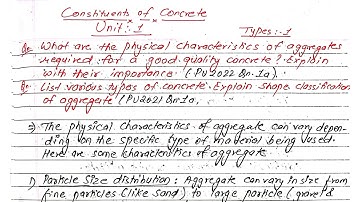 Constituents of Concrete
Unit: 1
Types:-1
Q. What are the physical characteristics of aggregates
required for a good quality concrete? Explain
with their importance (PU2022 Qn.1a).
Q. List various types of concrete. Explain shape classification
of aggregate (PU2021 Qn1a,
⇒ The physical characteristics of aggregate can vary depen-
ding on the specific type of material being used.
Here are some characteristics of aggregate.
1) Particle size distribution: Aggregate can vary in size from
fine particles (like sand) to large particle (gravel &